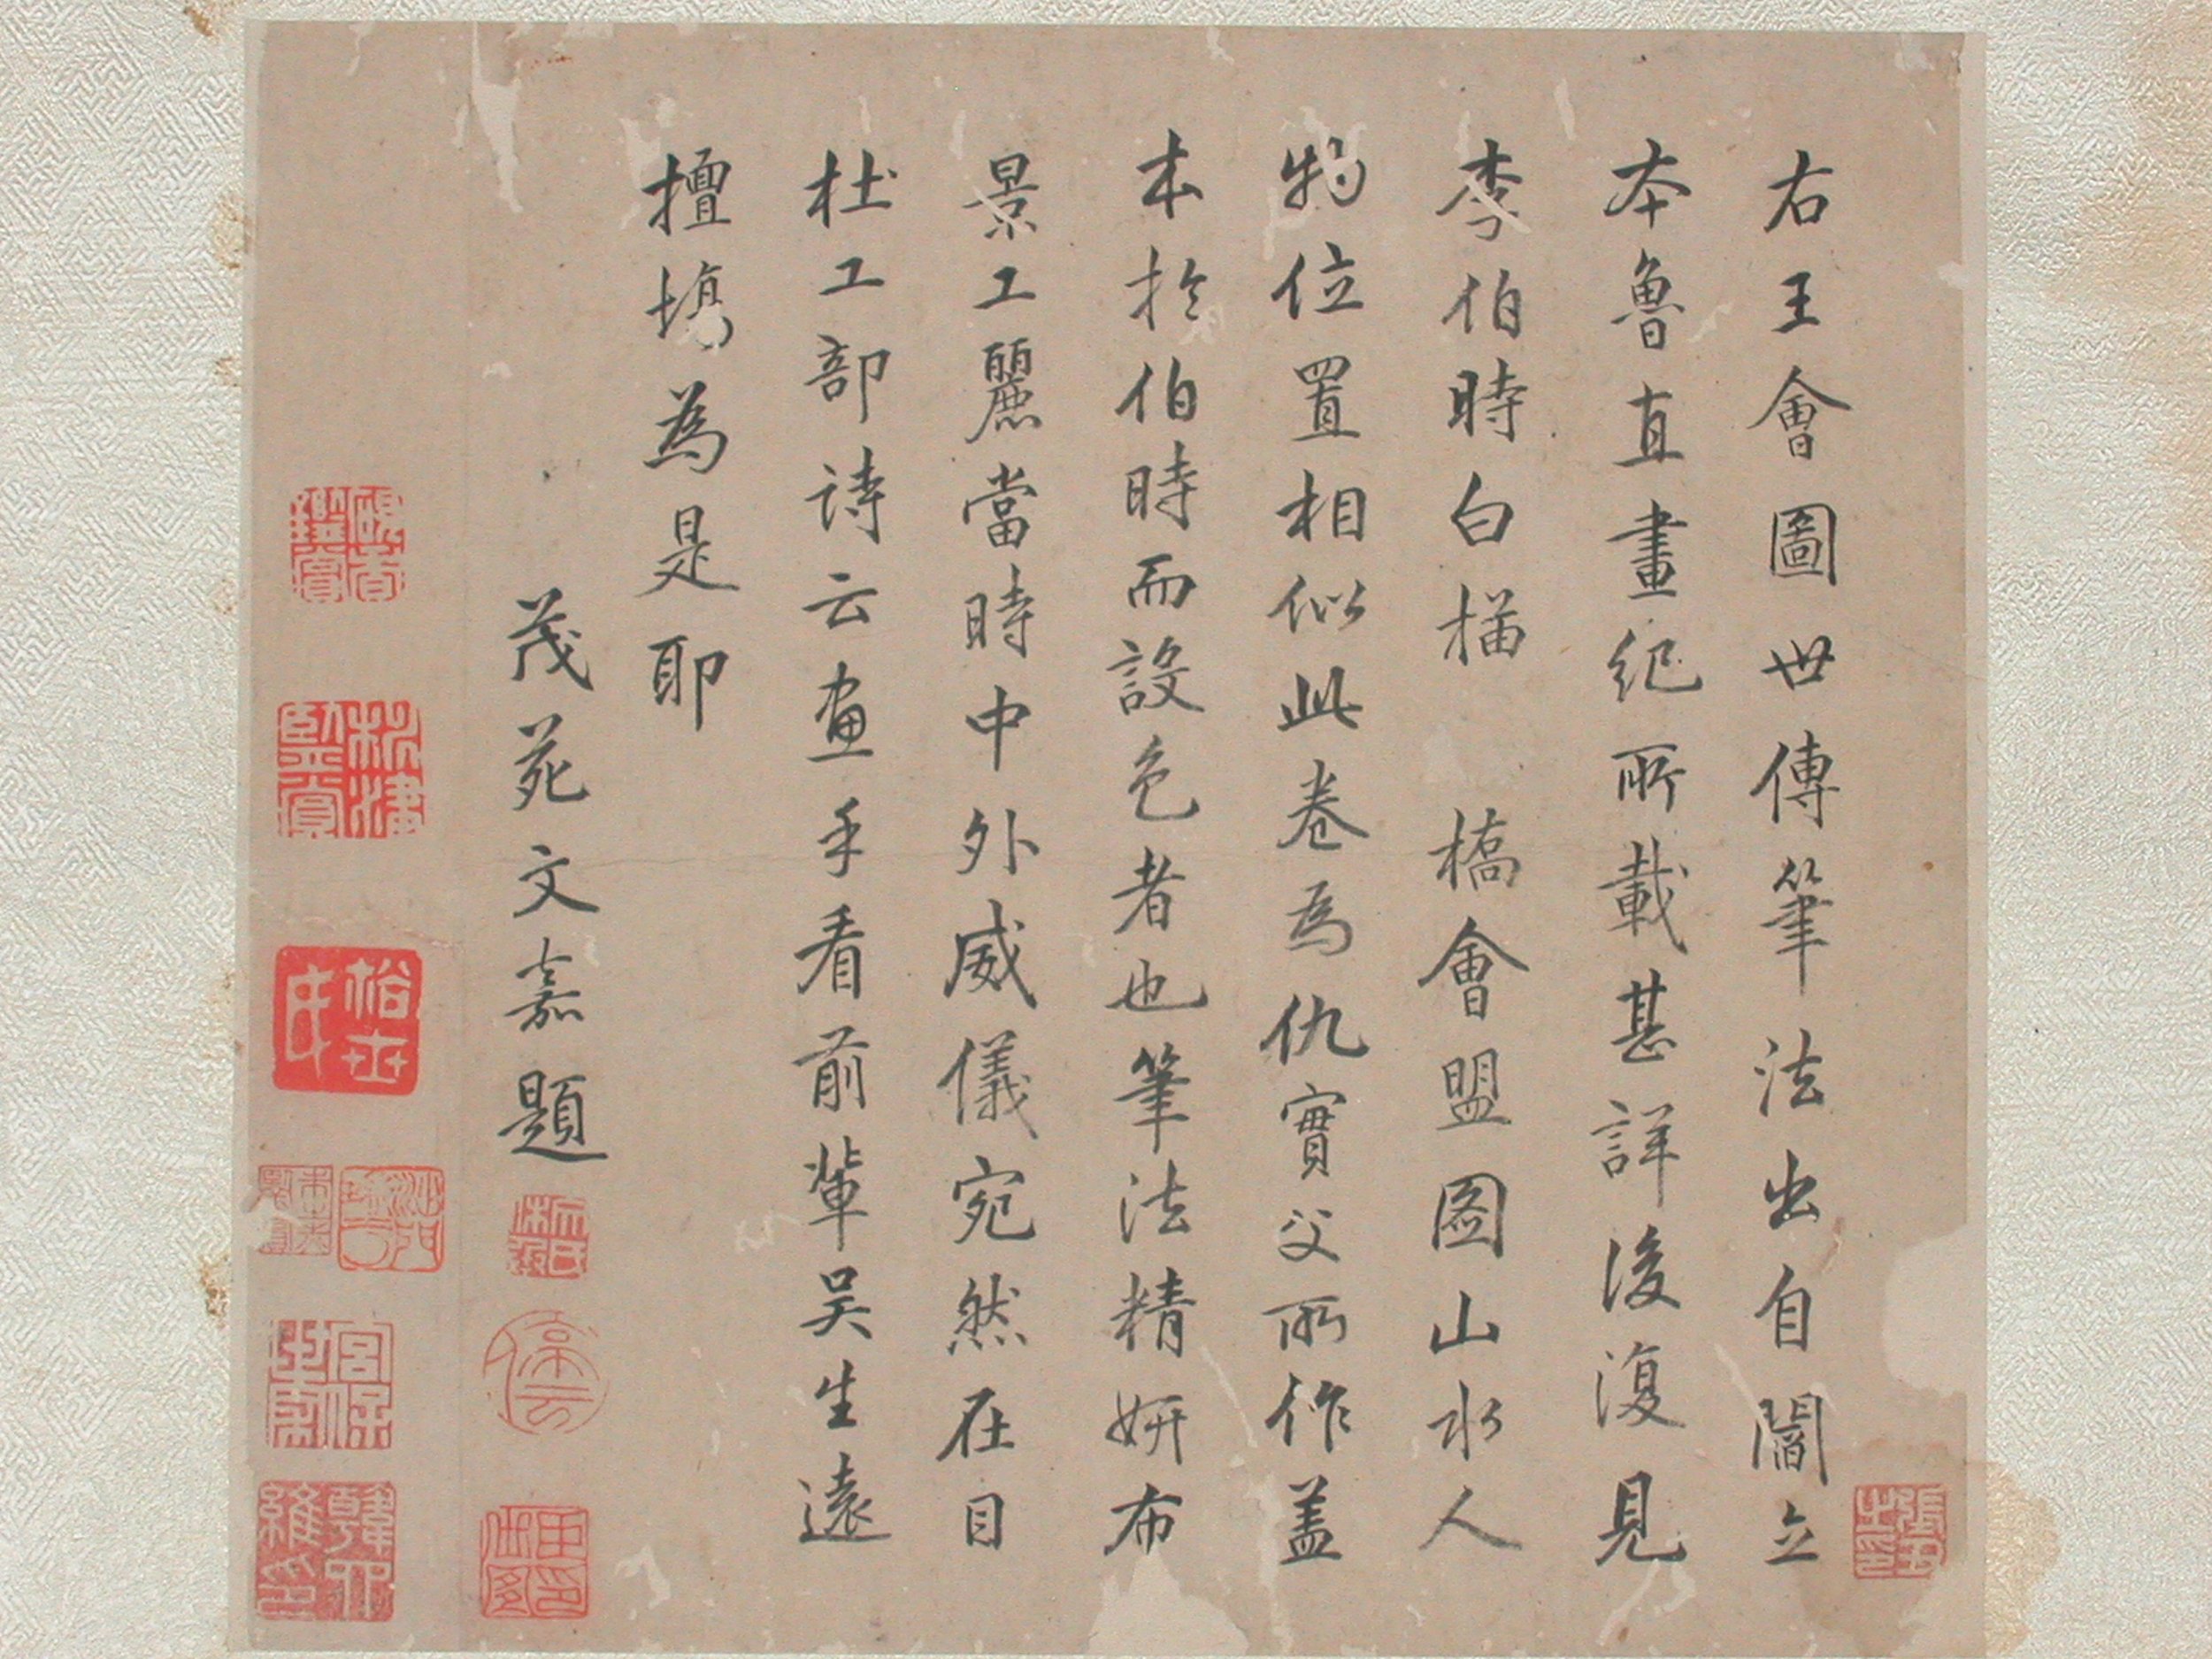 右王會圖世傳筆法出自閻立
本魯直畫紀所載甚詳後復見
李伯時白描 橋會盟圖山水人
物位置相似此卷為仇實父所作蓋
本於伯時而設色者也筆法精妍布
景工麗當時中外威儀宛然在目
杜工部詩云畫手看前輩吳生遠
擅場為是耶
茂苑文嘉題